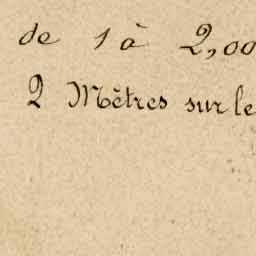 de 1 à 2,00
2 Mètres sur le